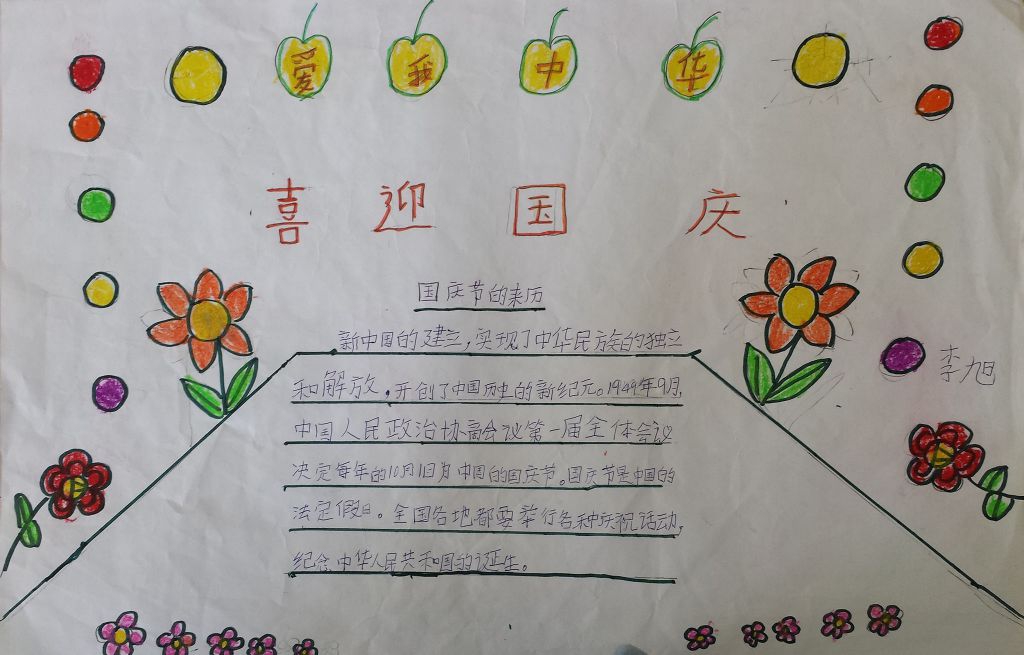 爱我中华
喜迎国庆
国庆节的来历
新中国的建立,实现了中华民族的独立
和解放。开创了中国历史的新纪元。1949年9月,
中国人民政治协商会议第一届全体会议
决定每年的10月1日为中国的国庆节。国庆节是中国的
法定假日。全国各地都要举行各种庆祝活动,
纪念中华人民共和国的诞生。
李旭